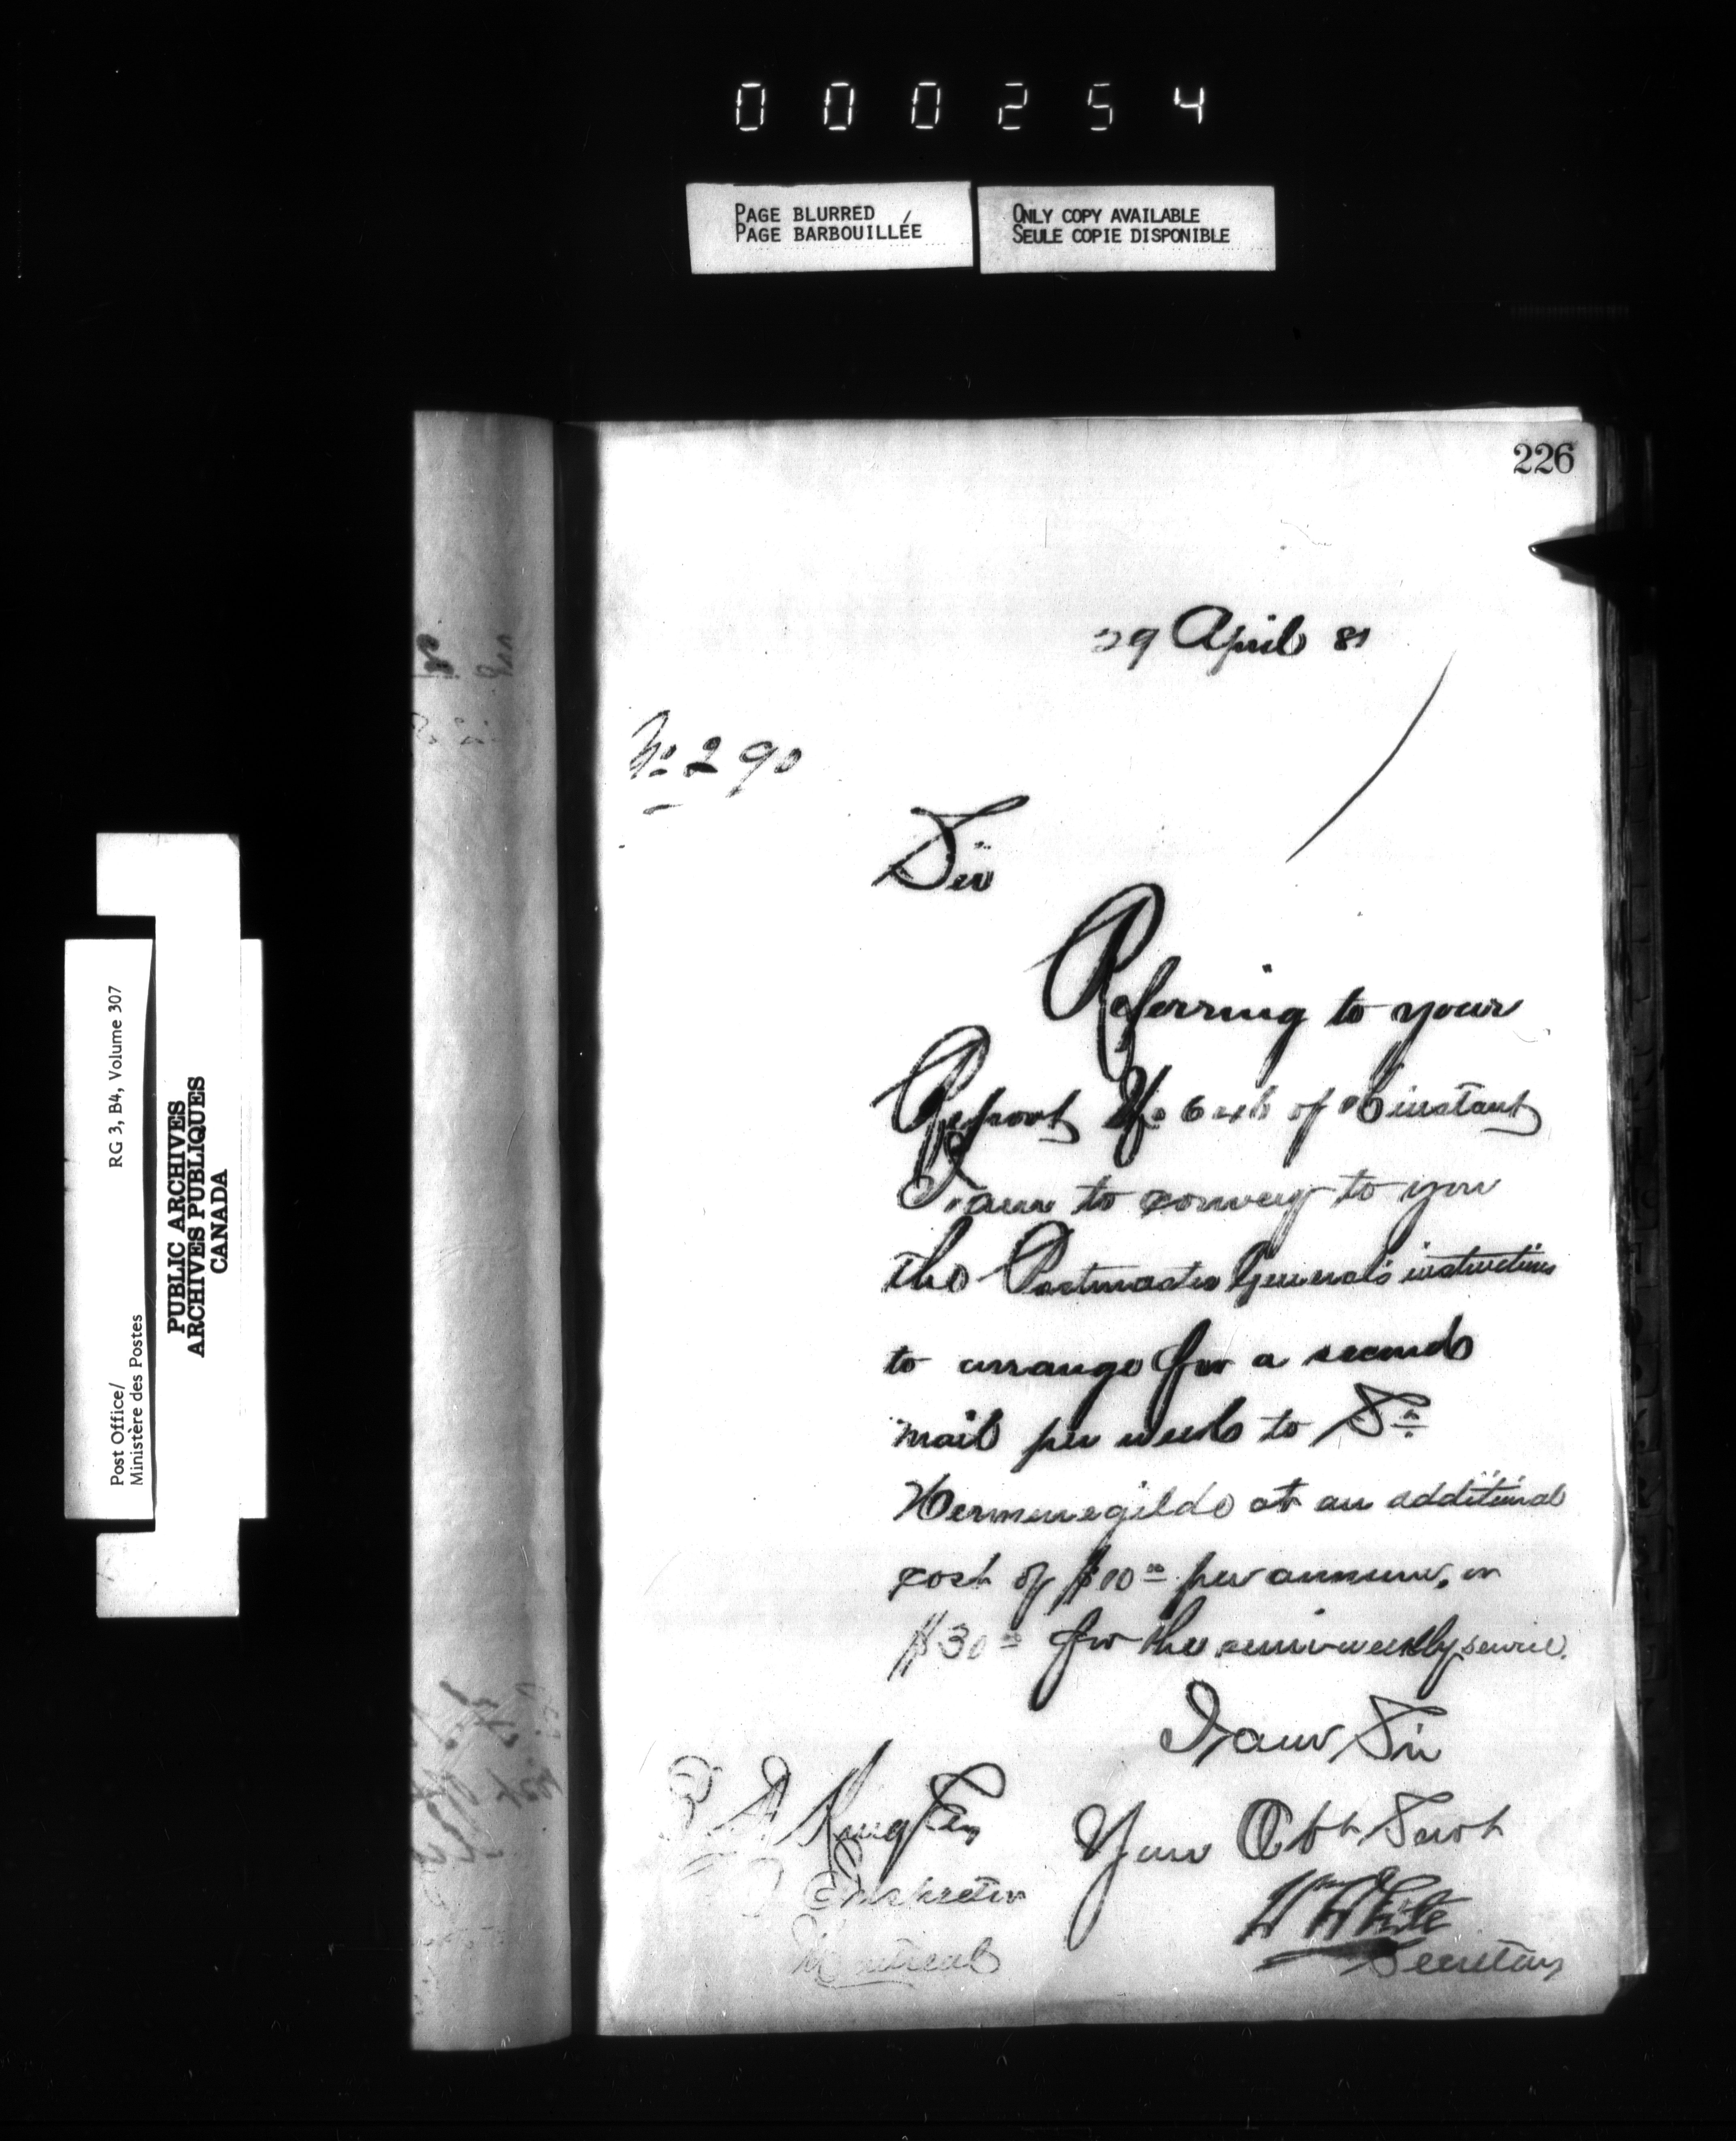 000254
PAGE BLURRED
PAGE BARBOUILLÉE
ONLY COPY AVAILABLE
SEULE COPIE DISPONIBLE
226
29 April 81
No 290
Sir
Referring to your
Report No of instant
I am to convey to you
the Postmaster General's instructions
to arrange for a second
mail per week to St
Hermenegilde at an additional
cost of $10 00 per annum, or
$30 00 for the semi-weekly service.
I am Sir
Your Obt Servt
Wm White
Secretary
King Esq
P O Inspector
Montreal
Post Office/
Ministère des Postes
RG 3, B4, Volume 307
PUBLIC ARCHIVES
ARCHIVES PUBLIQUES
CANADA